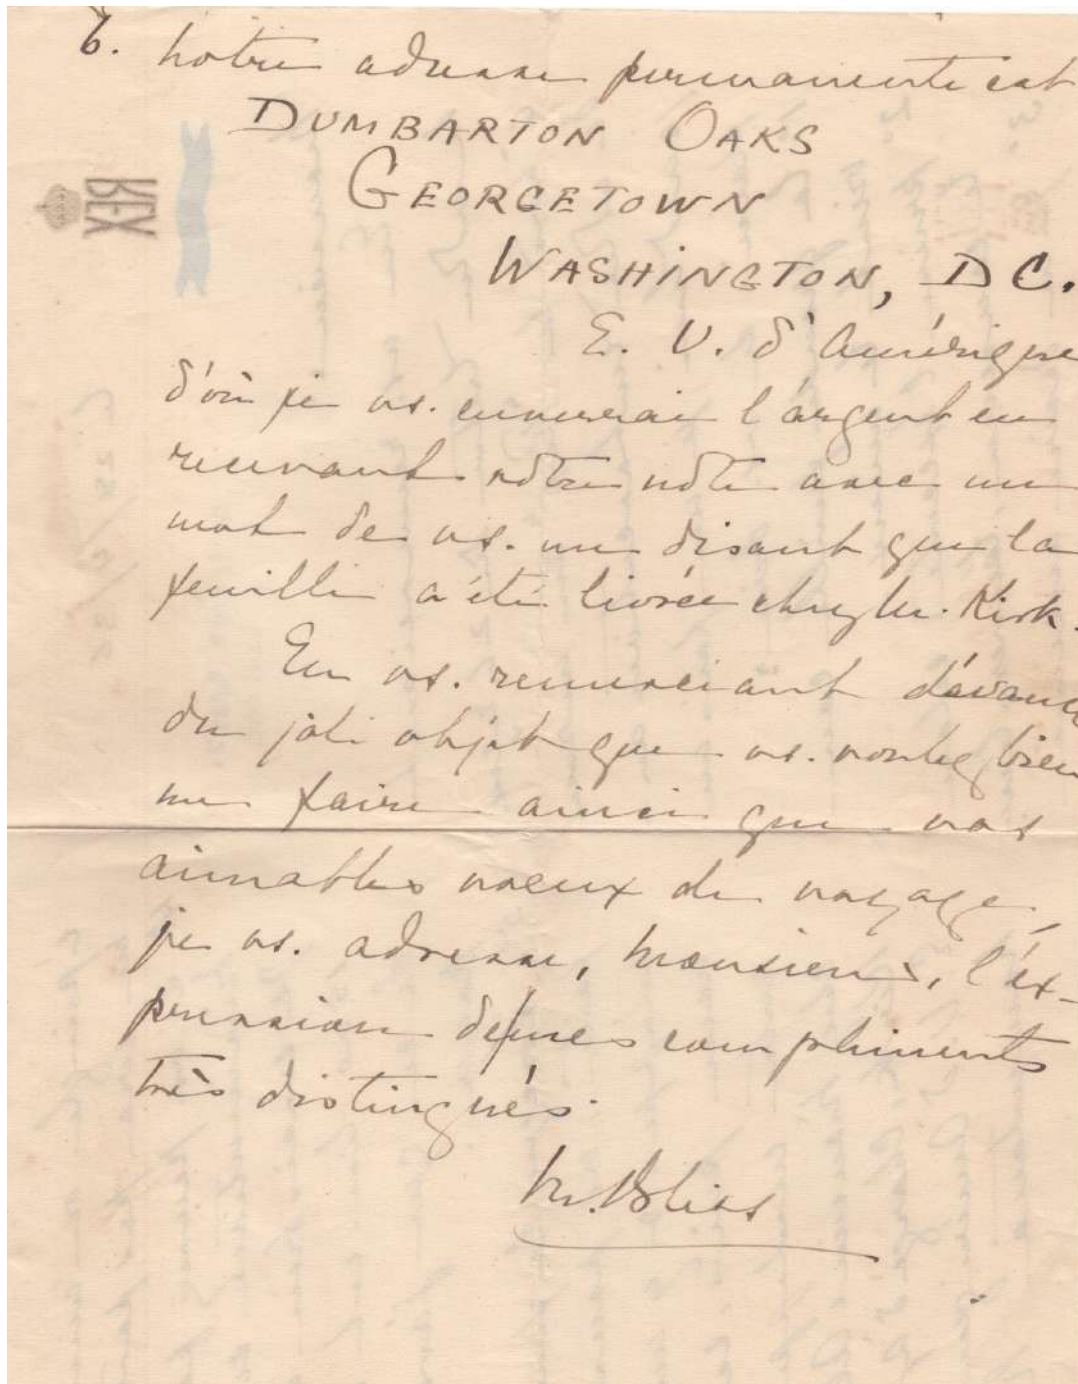 6. Notre adresse permanente est
DUMBARTON OAKS
GEORGETOWN
WASHINGTON, D C.
E. U. d'Amérique
d'où je vs. enverrai l'argent en
recevant vôtre nôte avec un
mot de vs. me disant que la
feuille a été livrée chez Mr. Kirk.
En vs. remerciant d'avance
du joli objet que vs. voulez bien
me faire ainsi que vos
aimables voeux de voyage,
je vs. adresse, Monsieur, l'ex-
pression de mes compliments
très distingués.
M. Bliss
REX